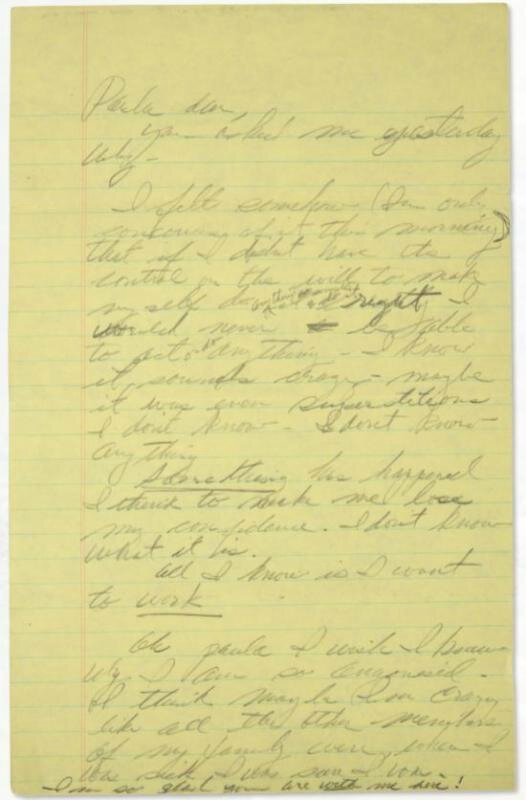 Paula dear,
You asked me yesterday
why—
I felt somehow (I'm only
conscious of it this morning)
that if I didn't have the
control or the will to make
myself do anything simple & right I
would never be able
to act or do anything — I know
it sounds crazy — maybe
it was even superstitious
I don't know — I don't know
anything
Something has happened
I think to make me lose
my confidence. I don't know
what it is.
All I know is I want
to work
Oh Paula I wish I knew
why I am so anguished.
I think maybe I'm crazy
like all the other members
of my family were, when I
was sick I was sure I was.
I'm so glad you are with me here!